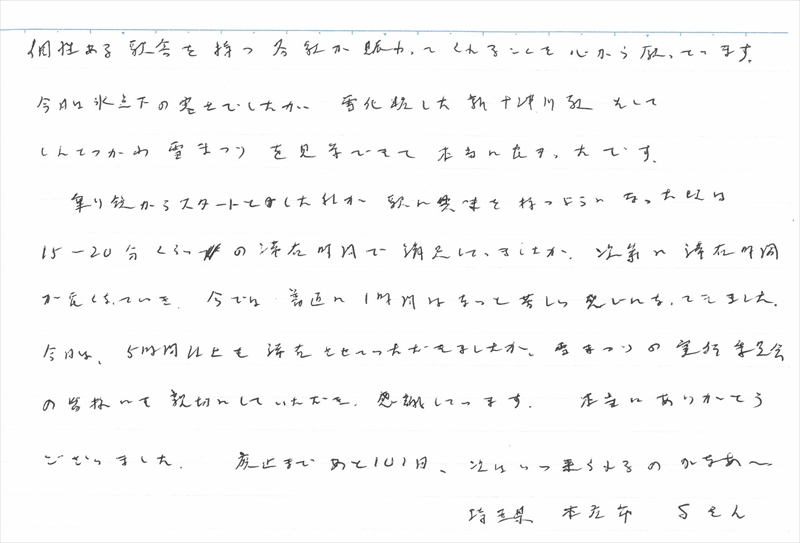 個性ある駅舎を持つ各駅が賑わってくれることを心から願っています。
今日は氷点下の寒さでしたが 雪化粧した新十津川駅 そして
しんとつかわ雪まつりを見学できて 本当に良かったです。
乗り鉄からスタートしましたが 駅に興味を持つようになった頃は
15−20分くらいの滞在時間で満足していましたが、次第に滞在時間
が長くなっていき、今では普通に1時間はないと苦しい感じになってきました。
今日は、5時間以上も滞在させていただきましたが、雪まつりの実行委員会
の皆様にも親切にしていただき、感謝しています。 本当にありがとう
ございました。 廃止まであと101日、次はいつ乗られるのかなあ〜
埼玉県 本庄市 Sさん